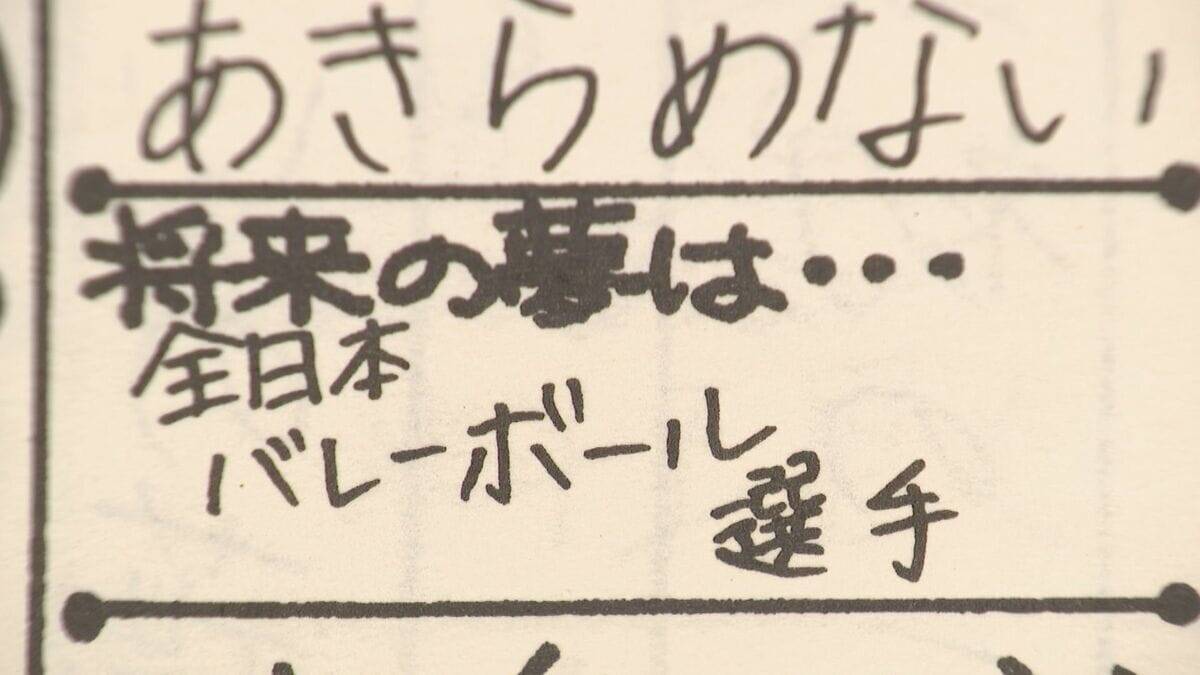 あきらめない
将来の夢は・・・
全日本
バレーボール
選手